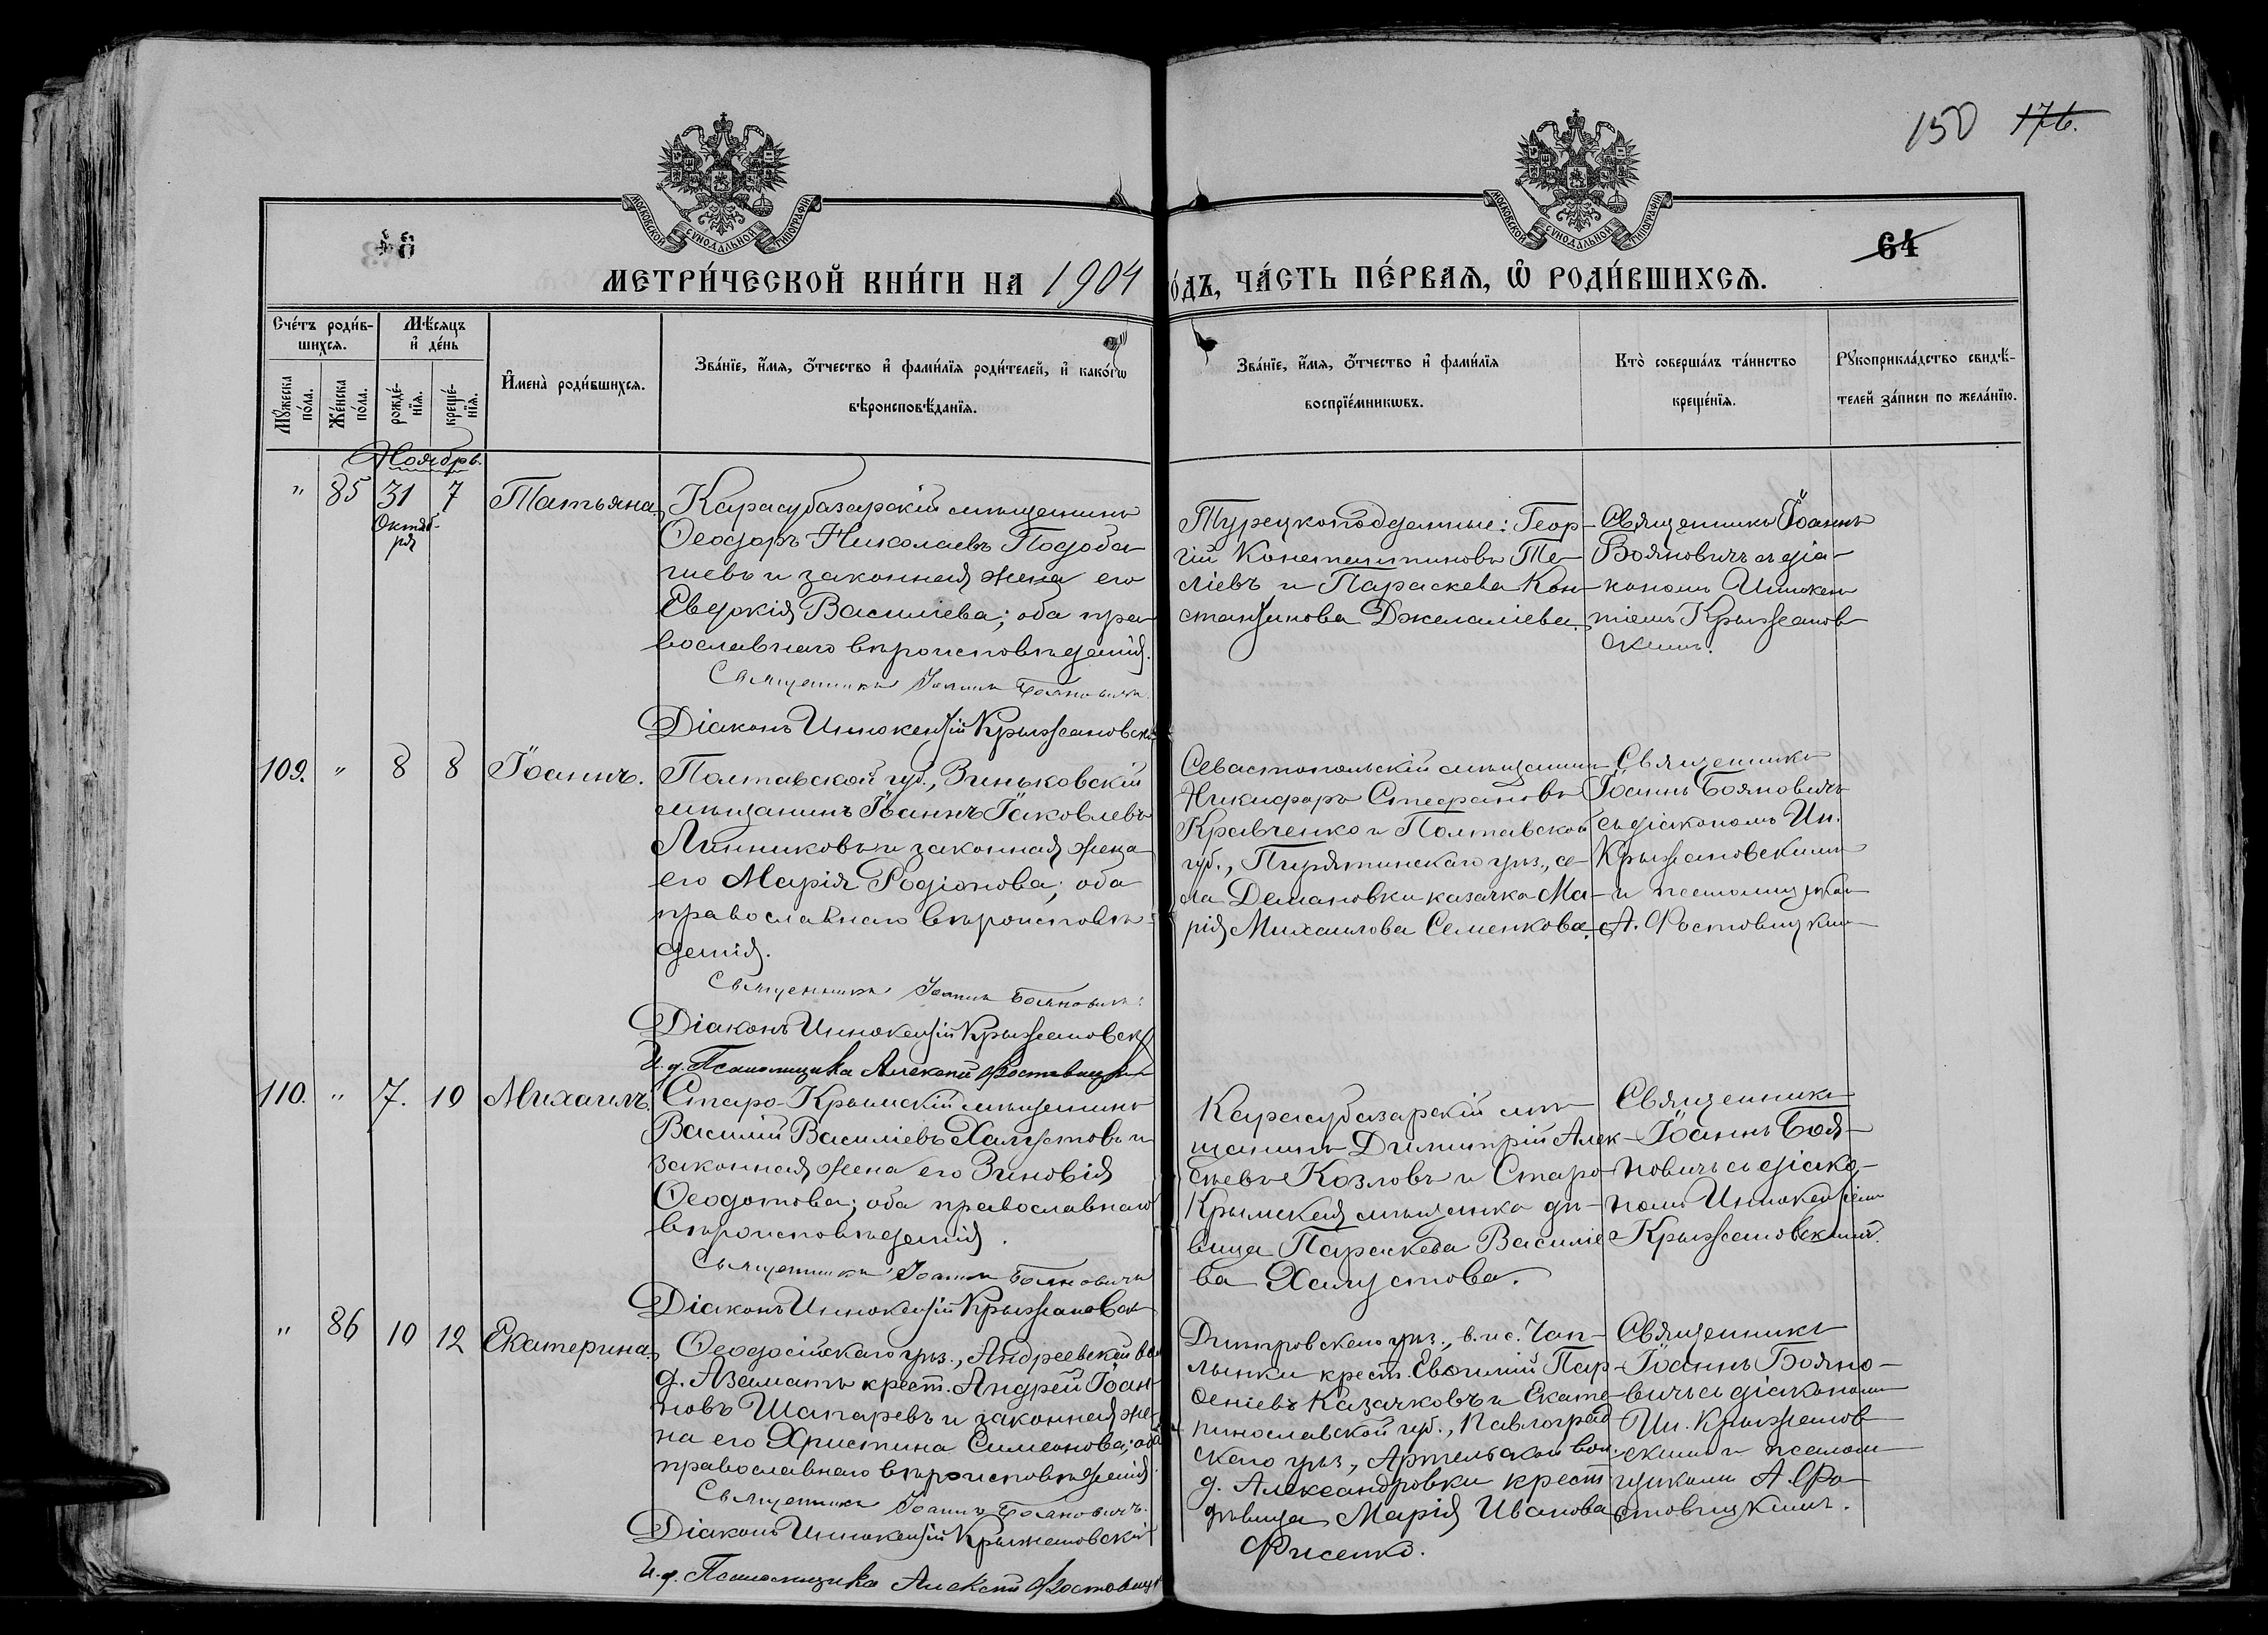 150 176.
МОСКОВСКОЙ СѴНОДАЛЬНОЙ ТИПОГРАФІИ
МОСКОВСКОЙ СѴНОДАЛЬНОЙ ТИПОГРАФІИ
64
МЕТРИ́ЧЕСКОЙ КНИ́ГИ НА 1904
О́ДЪ, ЧА́СТЬ ПЕ́РВАЯ, Ѽ РОДИ́ВШИХСЯ.
Сче́тъ роди́в-
шихся.
Мѣ́сяцъ
и҆ де́нь
Мꙋ́жеска
по́ла.
Же́нска
по́ла.
рожде́-
нїя.
креще́-
нїя.
И҆мена̀ роди́вшихся.
Зва́нїе, и҆́мя, ѻ҆́тчество и҆ фами́лїя роди́телей, и҆ како́гѡ
вѣроисповѣ́данїя.
Зва́нїе, и҆́мя, ѻ҆́тчество и҆ фами́лїя
воспрїе́мникѡвъ.
Кто̀ соверша́лъ та́инство
креще́нїя.
Рꙋкоприкла́дство свидѣ́-
телей за́писи по жела́нїю.
Ноябрь.
" 85 31 7 Татьяна
Октяб-
ря
Карасубазарскій мѣщанинъ
Ѳеодоръ Николаевъ Подоба-
и законная жена его
Евдокія Василіева; оба пра-
вославнаго вѣроисповѣданія.
Священникъ Іоаннъ Бояновичъ.
Діаконъ Иннокентій Крыжановскі
Турецкоподданные: Геор-
гій Константиновъ Те-
ліевъ и Параскева Кон-
стантинова Джелаліева.
Священникъ Іоаннъ
Бояновичъ съ діа-
кономъ Иннокен
тіемъ Крыжанов
скимъ.
109. " 8 8 Іоаннъ.
Полтавской губ., Зиньковскій
мѣщанинъ Іоаннъ Іаковлевъ
Линниковъ и законная жена
его Марія Родіонова; оба
православнаго вѣроисповѣ-
данія.
Священникъ Іоаннъ Бояновичъ.
Діаконъ Иннокентій Крыжановскі
И. д. Псаломщика Алексѣй Фостовицкій
Севастопольскій мѣщанин
Никифоръ Стефановъ
Кравченко и Полтавской
губ., Пирятинскаго уѣз., се-
ла Демановки казачка Ма-
рія Михаилова Семенкова.
Священникъ
Іоаннъ Бояновичъ
съ діакономъ Ин.
Крыжановскимъ
и псаломщиком
А. Фостовицким
110. " 7. 10 Михаилъ.
Старо-Крымскій мѣщанинъ
Василій Василіевъ Халустовъ и
законная жена его Зиновія
Ѳеодотова; оба православнаго
вѣроисповѣданія.
Священникъ Іоаннъ Бояновичъ
Діаконъ Иннокентій Крыжановск
Карасубазарскій мѣ-
щанинъ Димитрій Алек-
сѣевъ Козловъ и Старо-
Крымская мѣщанка дѣ-
вица Параскева Василіе-
ва Халустова.
Священникъ
Іоаннъ Боя-
новичъ съ діако-
номъ Иннокентіем
Крыжановскимъ.
" 86 10 12 Екатерина
Ѳеодосійскаго уѣз., Андреевской вол
д. Азаматъ крест. Андрей Іоан-
новъ Шапаревъ и законная же-
на его Христина Симеонова; оба
православнаго вѣроисповѣданія.
Священникъ Іоаннъ Бояновичъ.
Діаконъ Иннокентій Крыжановскій
И. д. Псаломщика Алексѣй Фостовицк
Днѣпровскаго уѣз., в. и с. Чап-
лынки крест. Евѳимій Пар-
ѳеніевъ Казачковъ и Екате-
ринославской губ., Павлоград
скаго уѣз., Артельской вол.
д. Александровки крест
дѣвица Марія Иванова
Фисенко.
Священникъ
Іоаннъ Бояно-
вичъ съ діакономъ
Ин. Крыжанов
скимъ и псалом
щикомъ А. Фо-
стовицкимъ.